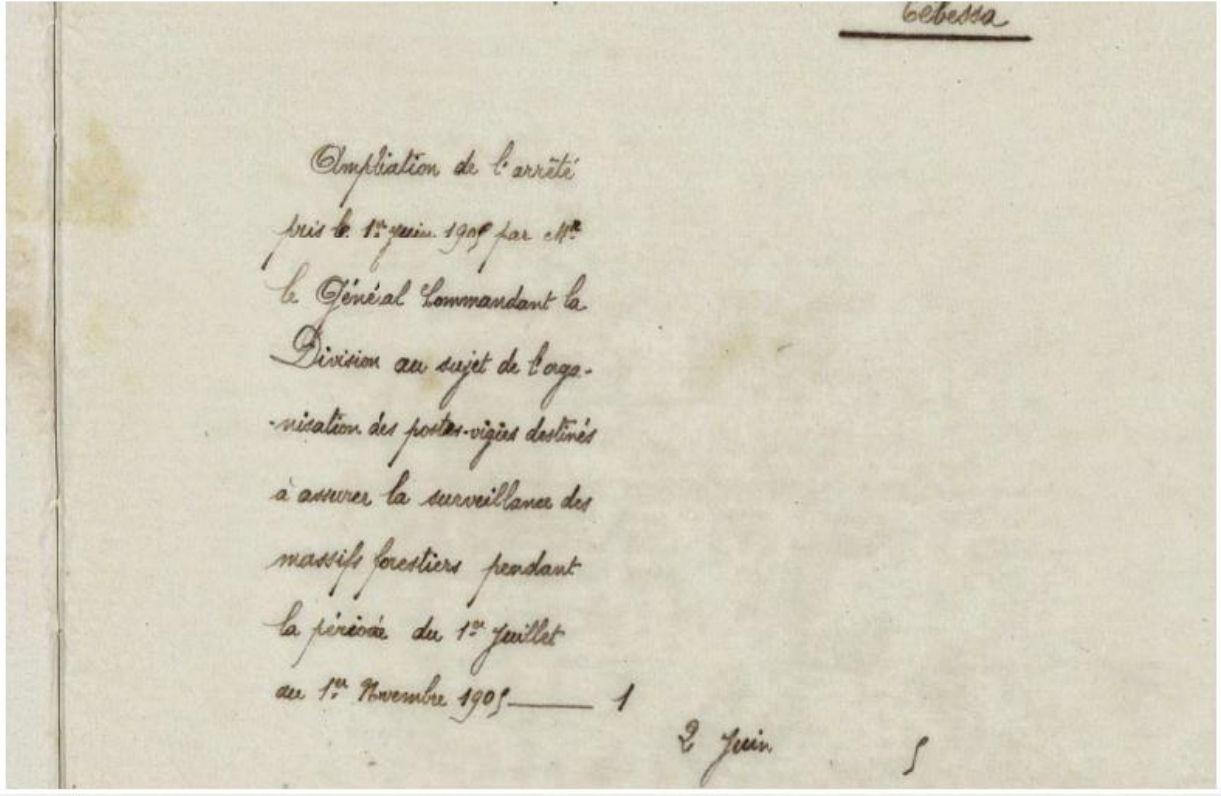 Tebessa
Ampliation de l'arrêté
pris le 1er Juin 1905 par Mr
le Général Commandant la
Division au sujet de l'orga-
-nisation des postes-vigies destinés
à assurer la surveillance des
massifs forestiers pendant
la période du 1er Juillet
au 1er Novembre 1905 ___ 1
2 Juin 5